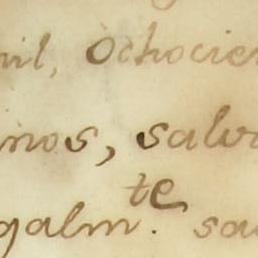 mil, Ochocien
inos, salvo
galm.te sa